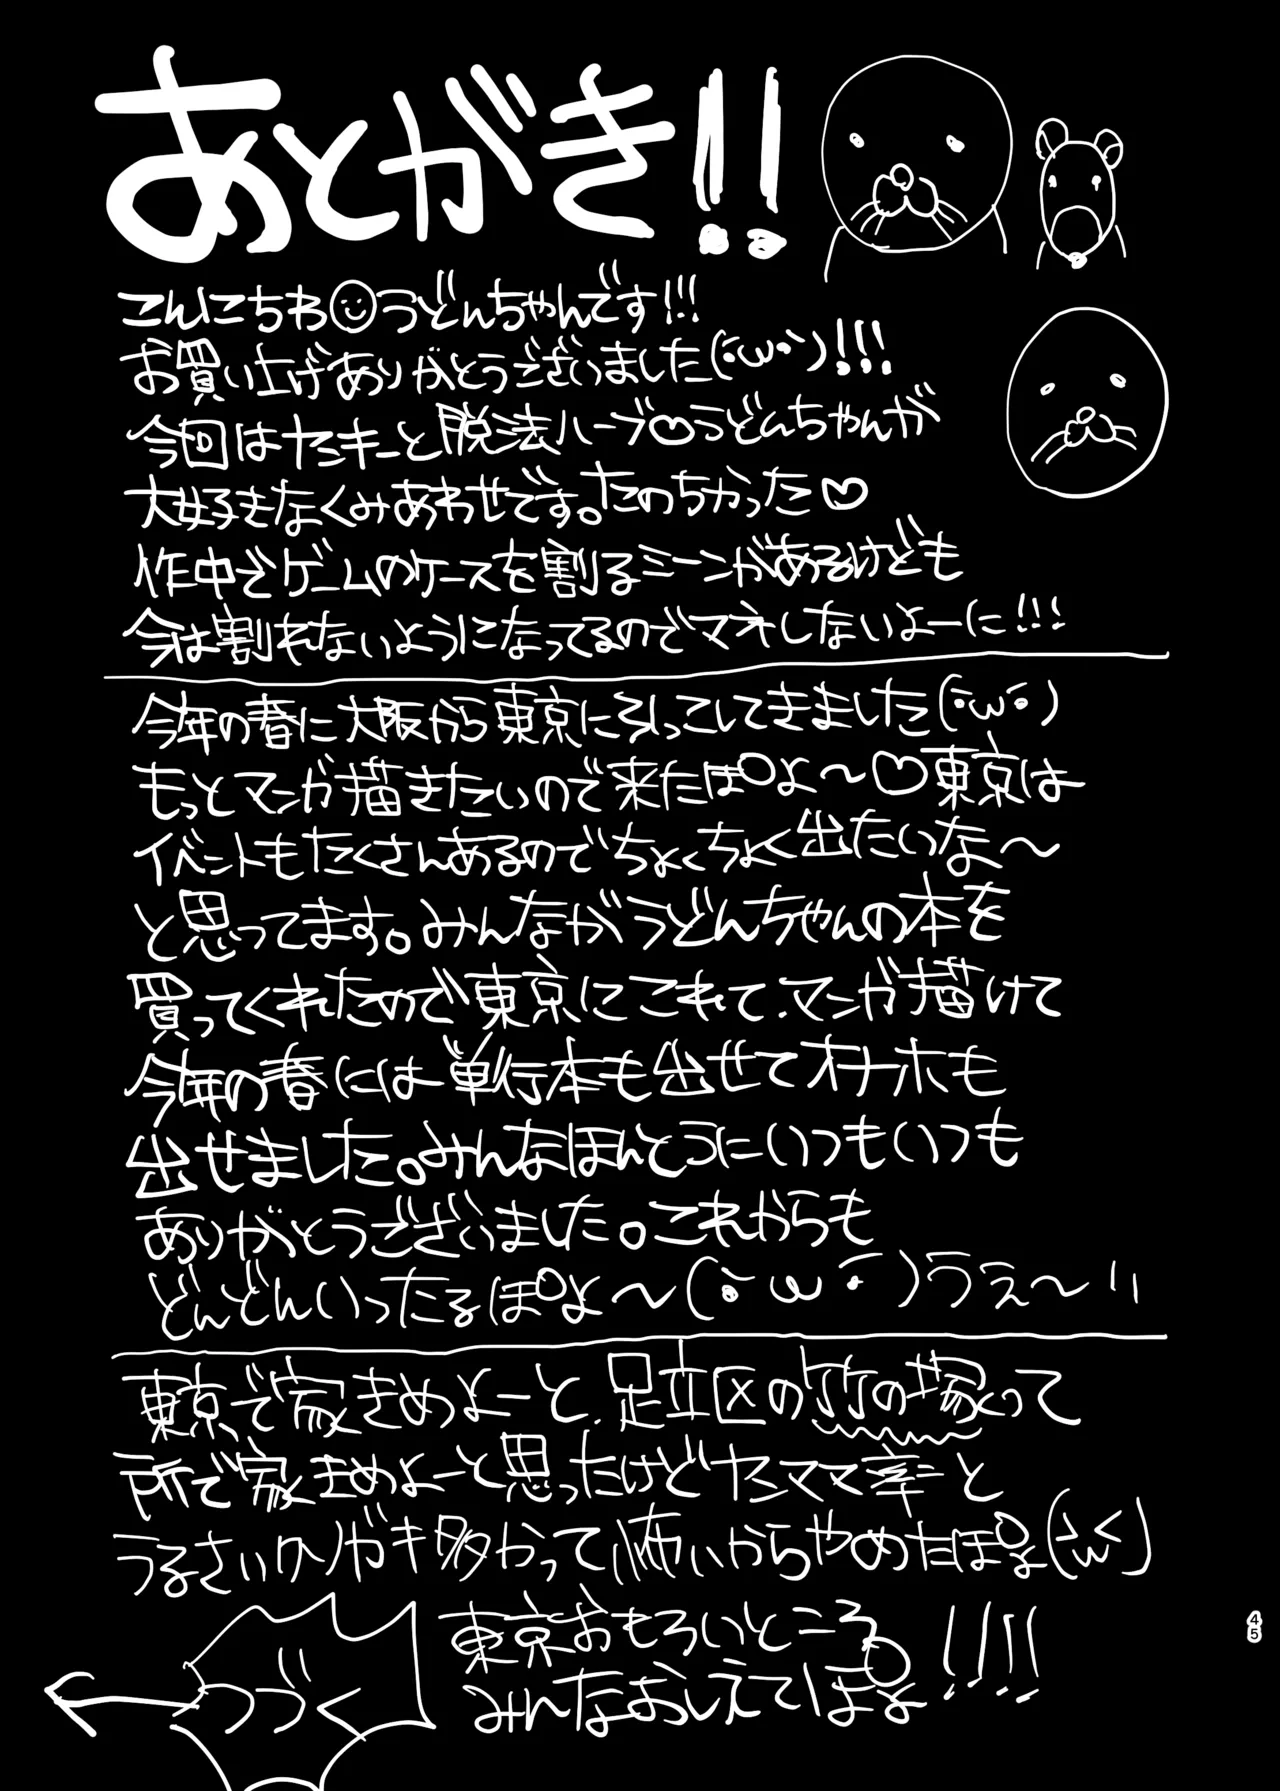 あとがき!!
こんにちわ うどんちゃんです!!!
お買い上げありがとうございました(・ω・)!!!
今回はヤンキーと脱法ハーブ♡うどんちゃんが
大好きなくみあわせです。たのちかった♡
作中でゲームのケースを割るシーンがあるけども
今は割れないようになってるのでマネしないよーに!!!
今年の春に大阪から東京にひっこしてきました(・ω・)
もっとマンガ描きたいので来たぽよ〜♡東京は
イベントもたくさんあるのでちょくちょく出たいな〜
と思ってます。みんながうどんちゃんの本を
買ってくれたので東京にこれて、マンガ描けて
今年の春には単行本も出せてオナホも
出せました。みんなほんとうにいつもいつも
ありがとうございました。これからも
どんどんいったるぽよ〜(・ω・)うぇ〜い
東京で家きめよーと、足立区の竹の塚って
所で家きめよーと思ったけどヤンママ率と
うるさいクソガキ多かって怖いからやめたぽよ(>ω<)
東京おもろいところ
みんなおしえてぽよ!!!!
つづく
45